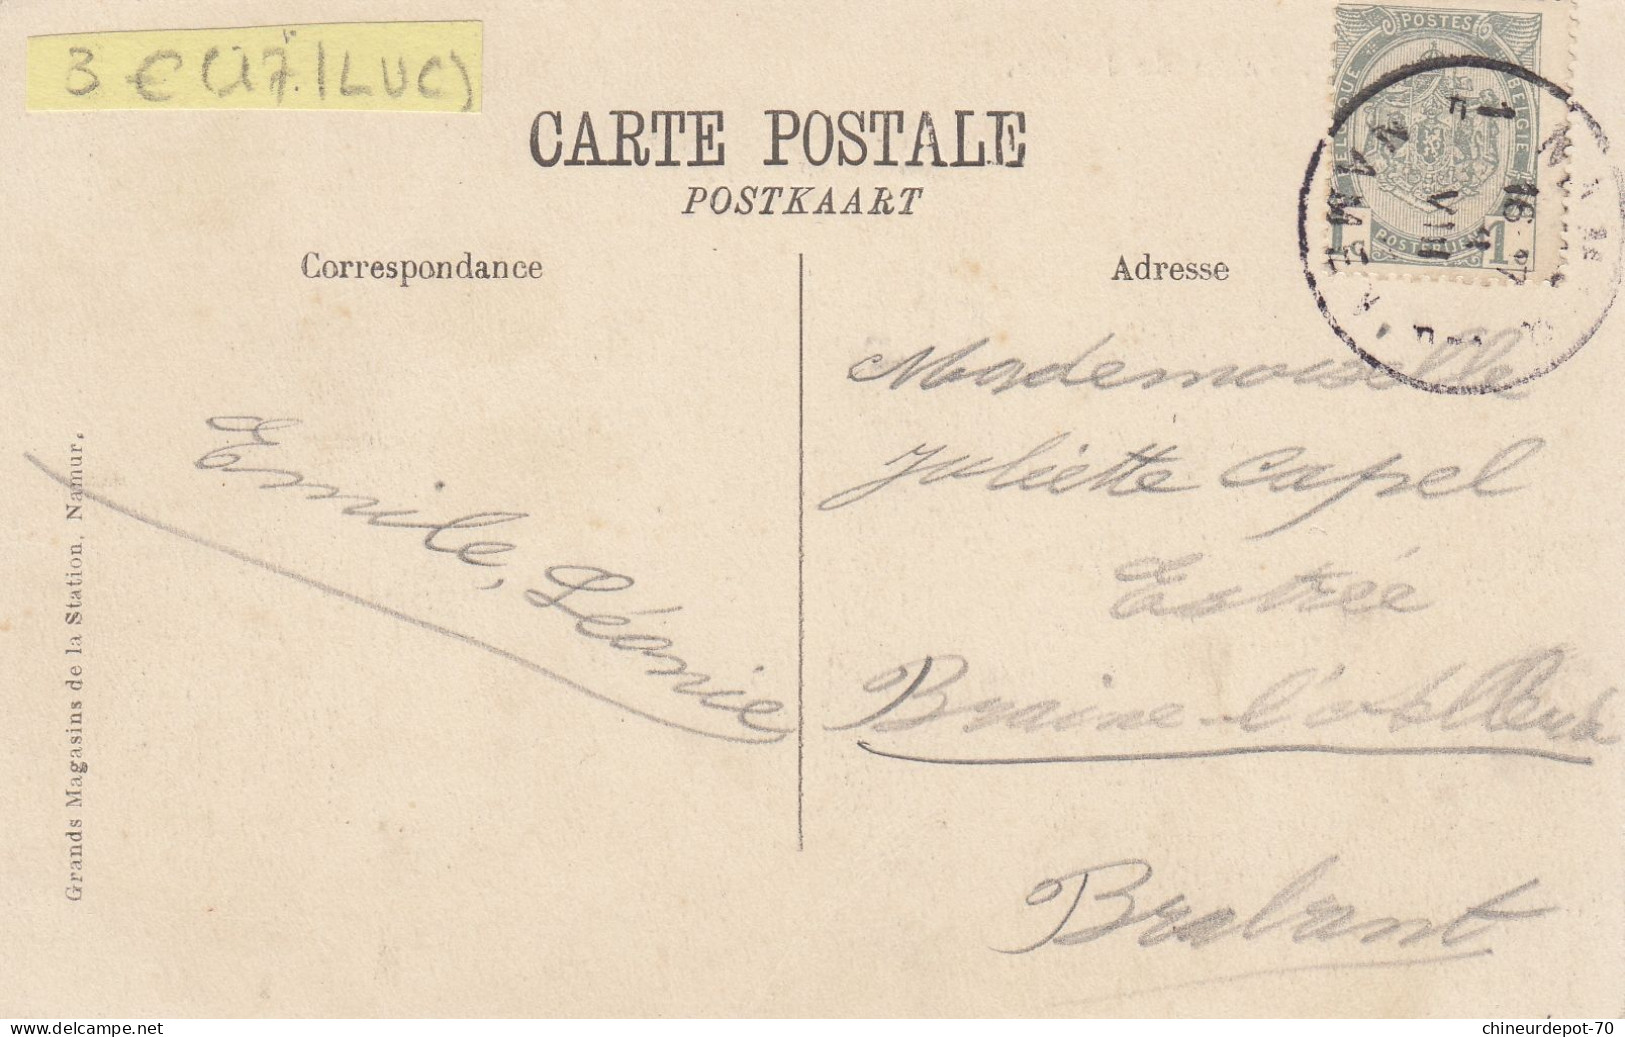 3 € (17. | LUC)
POSTES
BELGIQUE
BELGIE
POSTERIJEN
1
1
NAMUR
VIII
NAMEN
CARTE POSTALE
POSTKAART
Correspondance
Adresse
Mademoiselle
Juliette Capel
Estrée
Braine-l'Alleud
Brabant
Emile, Léonie
Grands Magasins de la Station, Namur.
www.delcampe.net
chineurdepot-70